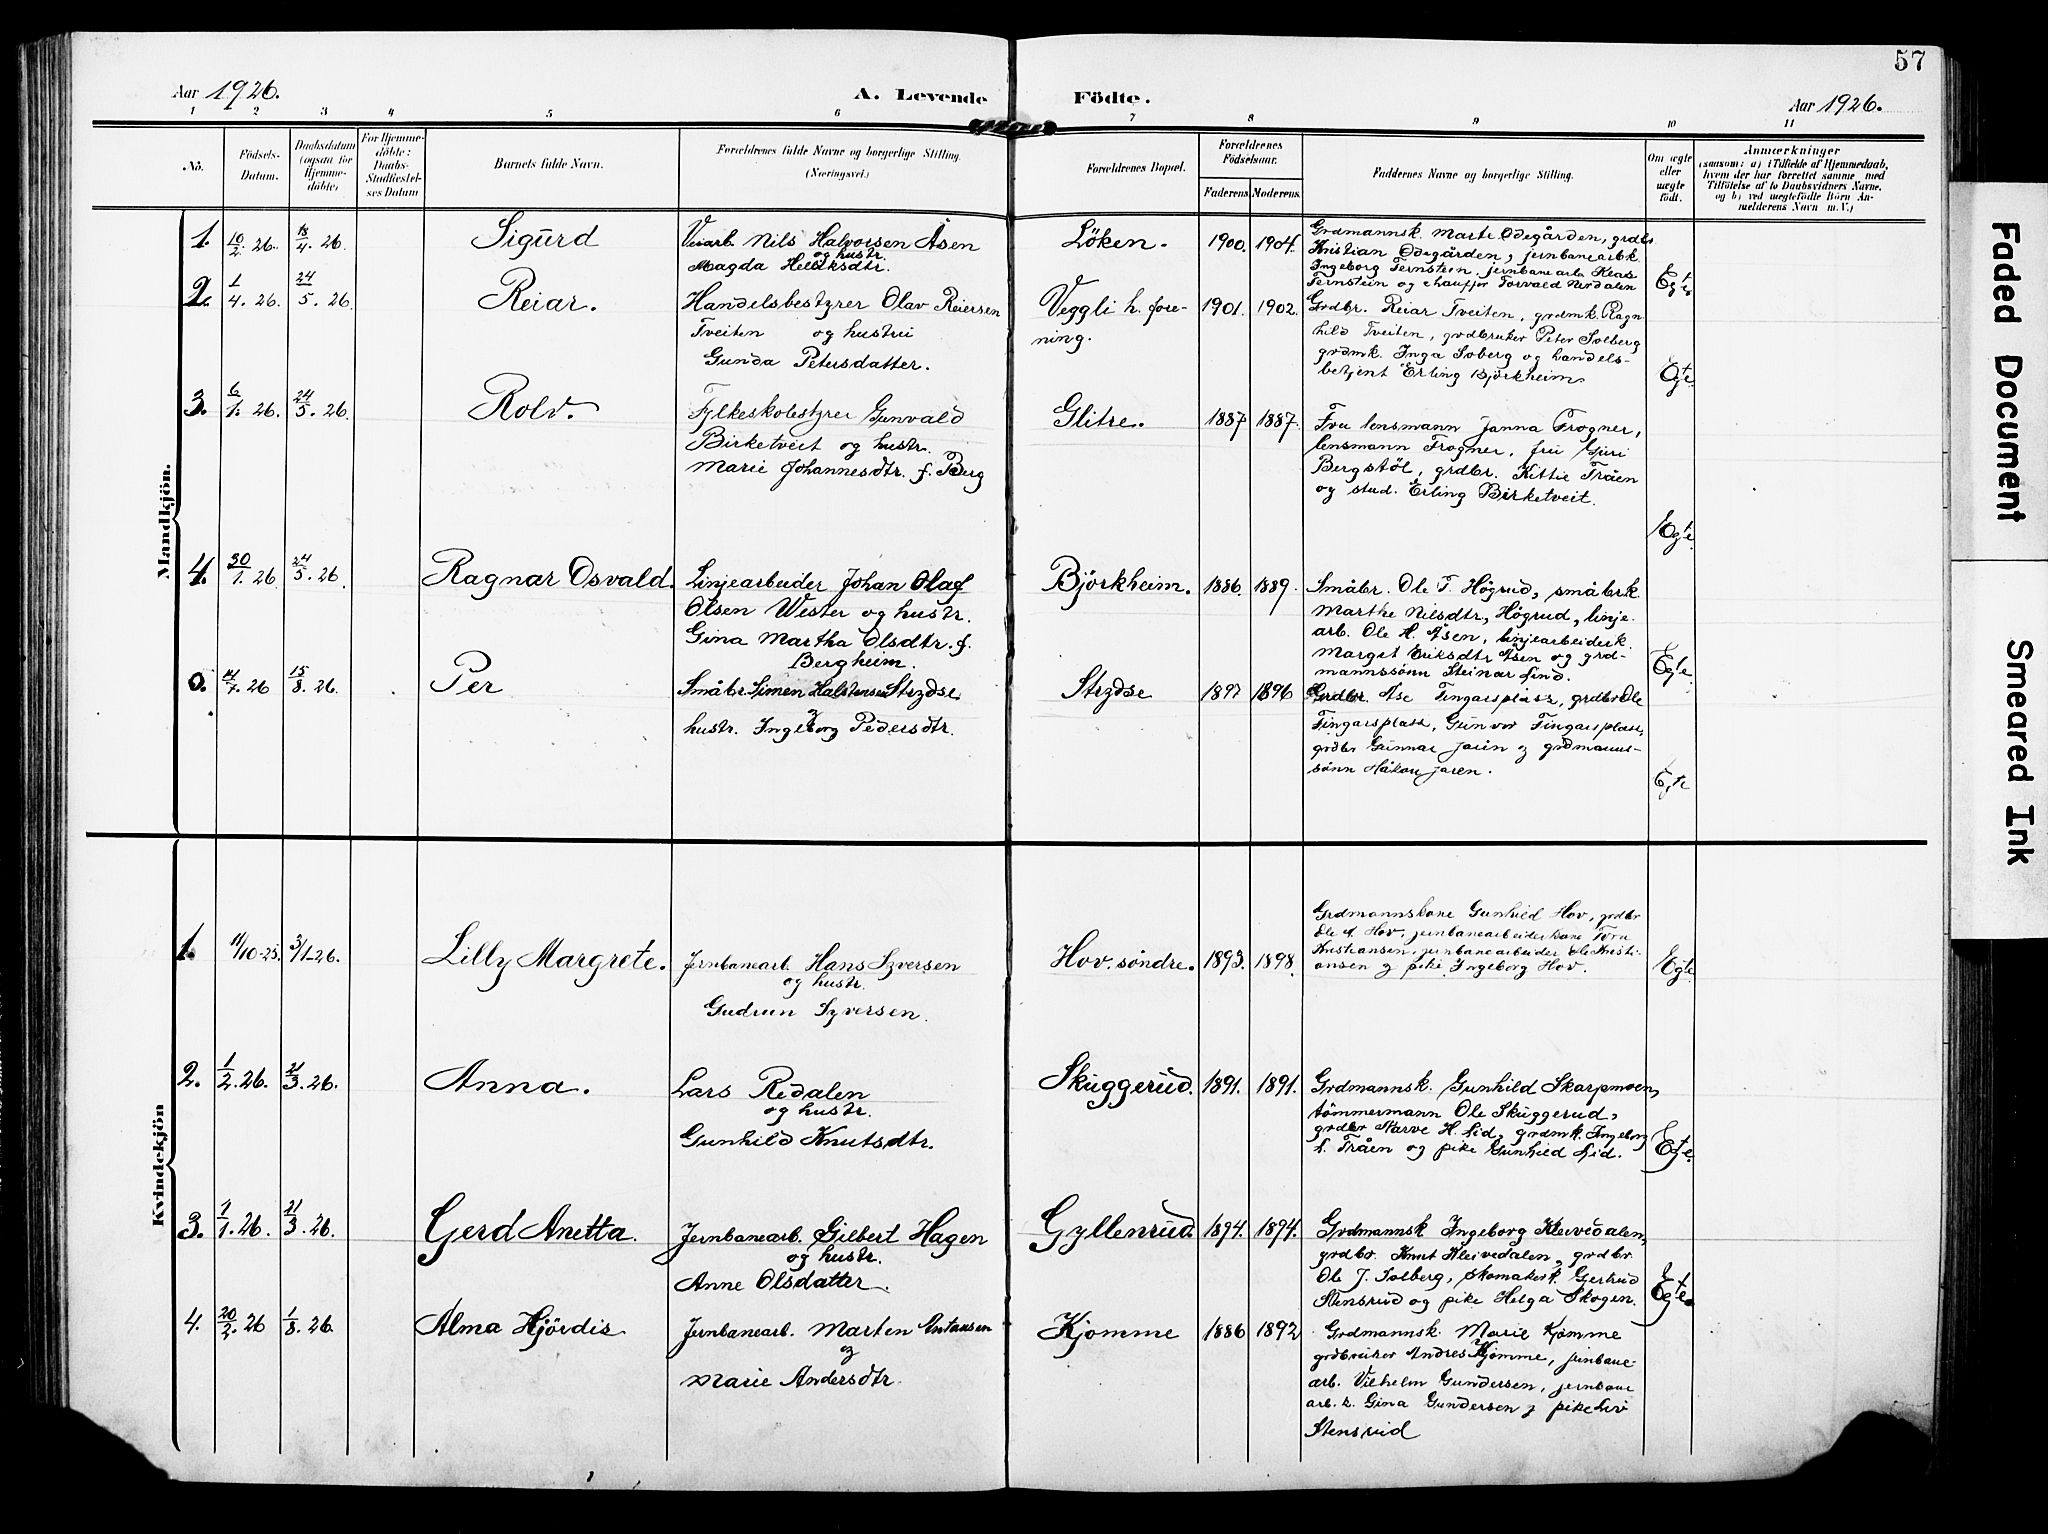 57
Aar 1926.
A. Levende Födte.
Aar 1926.
1 2 3 4 5 6 7 8 9 10 11
No.
Födsels-Datum.
Daabsdatum (ogsaa for Hjemme-döbte)
For Hjemme-döbte: Daabs-Stadfæstel-ses Datum
Barnets fulde Navn.
Forældrenes fulde Navne og borgerlige Stilling. (Næringsvei.)
Forældrenes Bopæl.
Forældrenes Födselsaar.
Faderens. Moderens.
Faddernes Navne og borgerlige Stilling.
Om ægte eller uægte födt.
Anmærkninger
(saasom: a) i Tilfælde af Hjemmedaab, hvem der har forrettet samme, med Tilföielse af to Daabsvidners Navne, og b) ved uægtefödte Börn An-melderens Navn m. V.)
Mandkjön.
1. 10/2. 26. 18/4. 26. Sigurd
Veiarb. Nils Halvorsen Åsen
og hustr.
Magda Helliksdtr.
Löken. 1900. 1904.
Grdmannsk. Marte Ødegården, grdbr
Kristian Ødegården, jernbanearbk.
Ingeborg Fernstein, jernbanearb. Klas
Fernstein og chauffør Torvald Nerdalen
Egte
2. 1/4. 26. 24/5. 26. Reiar.
Handelsbestyrer Olav Reiersen
Tveiten og hustru
Gunda Petersdatter.
Veggli h. fore-
ning.
1901. 1902.
Grdbr. Reiar Tveiten, grdmk. Ragn
hild Tveiten, grdbruker Peter Solberg
grdmk. Inga Soberg og handels-
betjent Erling Björkheim.
Egte
3. 6/1. 26. 24/5. 26. Rolv.
Fylkeskolestyrer Gunvald
Birketveit og hustr.
Marie Johannesdtr. f. Berg
Glitre. 1887 1887.
Fru lensmann Janna Frogner,
lensmann Frogner, frü Guri
Bergstöl, grdbr. Kittil Tråen
og stud. Erling Birketveit.
Egte.
4. 30/1. 26 24/5. 26. Ragnar Osvald.
Linjearbeider Johan Olaf
Olsen Wester og hustr.
Gina Martha Olsdtr. f.
Bergheim.
Björkheim. 1886. 1889.
Småbr. Ole T. Högrud, småbrk.
Marthe Nilsdtr, Högrud, linje-
arb. Ole H. Åsen, linjearbeiderk.
Margit Eriksdtr Åsen og grd-
mannssönn Steinar Lind.
Egte.
5. 14/7. 26 15/8. 26. Per
Småbr. Simen Halstensen Strydse
hustr. Ingeborg Pedersdtr.
Strydse 1897 1896
Grdbr. Åse Fingarsplass, grdbr Ole
Fingarsplass, Gunvor Fingarsplass,
grdbr Gunnar Jaren og grdmanns-
sönn Håkon Jaren.
Egte
Kvindekjön
1. 11/10-25. 3/1-26. Lilly Margrete.
Jernbanearb. Hans Syversen
og hustr.
Gudrun Syversen.
Hov. söndre. 1893. 1898.
Grdmannskone Gunhild Hov, grdbr
Ole A Hov, jernbanearbeiderkone Torn
Kristiansen, jernbanearbeider Ole Kristi-
ansen og pike Ingeborg Hov.
Egte
2. 1/2. 26. 21/3. 26. Anna.
Lars Redalen
og hustr.
Gunhild Knutsdtr.
Skuggerud. 1891. 1891.
Grdmannsk. Gunhild Skarpmoen,
tömmermann Ole Skuggerud,
grdbr Narve H. Lid, grdmk. Ingeborg
L. Tråen og pike Gunhild Lid.
Egte.
3. 7/1. 26. 21/3. 26. Gerd Anetta.
Jernbanearb. Gilbert Hagen
og hustr.
Anne Olsdatter.
Gyllenrud. 1894. 1894.
Grdmannsk Ingeborg Kleivedalen,
grdbr. Knut Kleivedalen, grdbr
Ole J. Solberg, skomakerk. Gertrud
Stensrud og pike Helga Skogen.
Egte.
4. 20/2. 26 1/8. 26. Alma Hjördis
Jernbanearb. Marten Antonsen
og
Marie Andersdtr.
Kjomme 1886 1892
Grdmannsk. Marie Kjømme
grdbruker Andres Kjømme, jernbane-
arb. Vilhelm Gundersen, jernbane
arb. k. Gina Gundersen og pike Liv
Stensrud
Faded Document
Smeared Ink